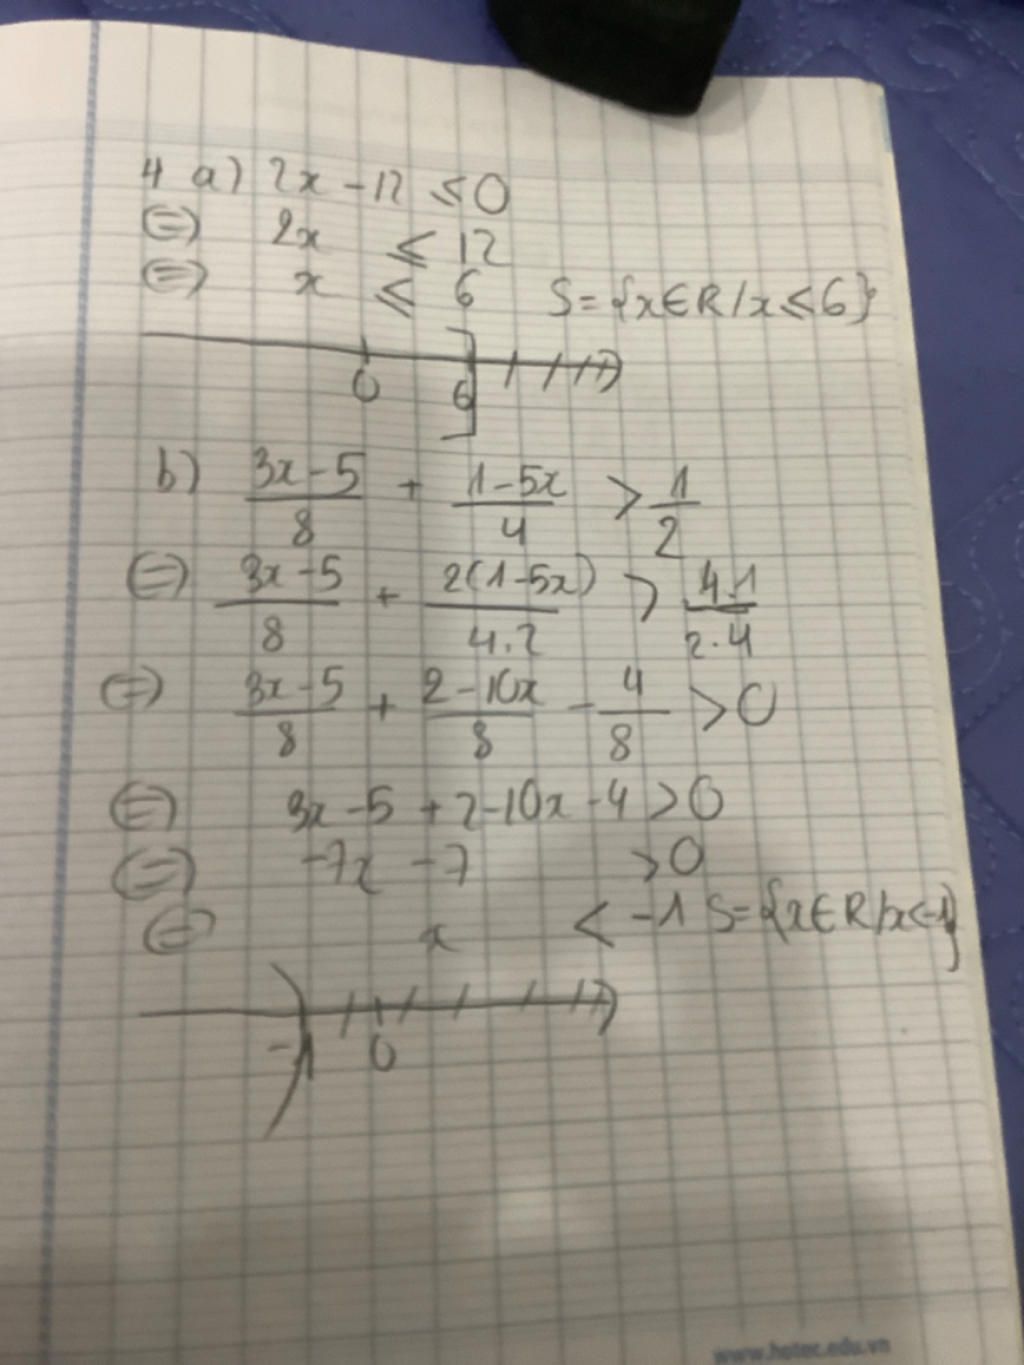 4 a) 2x - 12 ≤ 0
(=) 2x ≤ 12
(=) x ≤ 6 S = {x∈R/x ≤ 6}
0 6
b) \frac{3x-5}{8} + \frac{1-5x}{4} > \frac{1}{2}
(=) \frac{3x-5}{8} + \frac{2(1-5x)}{4.2} > \frac{4.1}{2.4}
(=) \frac{3x-5}{8} + \frac{2-10x}{8} - \frac{4}{8} > 0
(=) 3x - 5 + 2 - 10x - 4 > 0
(=) -7x - 7 > 0
(=) x < -1 S = {x∈R/x<-1}
-1 0
www.hotec.edu.vn